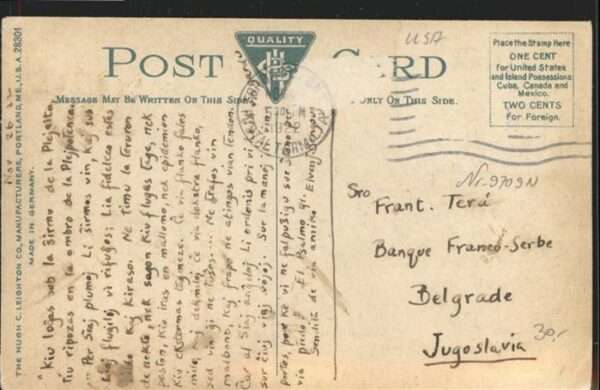 QUALITY
POST CARD
MESSAGE MAY BE WRITTEN ON THIS SIDE
ONLY ON THIS SIDE.
USA
Place the Stamp Here
ONE CENT
for United States
and Island Possessions
Cuba, Canada and
Mexico.
TWO CENTS
For Foreign.
THE HUGH C. LEIGHTON CO., MANUFACTURERS, PORTLAND, ME., U.S.A. 28301
MADE IN GERMANY.
Nov 26
"Kiu loĝas sub la ŝirmo de la Plejalta,
Tiu ripozas en la ombro de la Plejpotenca
Per Siaj plumoj Li ŝirmos vin, kaj sub
Liaj flugiloj vi rifuĝos; Lia fideleco estas
kaj kiraso. Ne timu la teruron
de nokto, nek sagon kiu flugas tage, nek
peston, kiu iras en mallumo, nek epidemion
kiu ekstermas tagmeze. Ĉe via flanko falos
milo, kaj dekmiloj ĉe via dekstra flanko,
sed vin ĝi ne tuŝos... Ne trafos vin
malbono, kaj frapo ne atingos vian tendon.
Ĉar al Siaj anĝeloj Li ordonis pri vi
sur ĉiuj viaj vojoj. Sur la manoj ili vin
portos, por ke vi ne falpuŝiĝu sur ŝtono per
via piedo." El Psalmo 91.
Sendita de via amiko,
Nr. 9709N
Sro
Frant. Terá
Banque Franco-Serbe
Belgrade
Jugoslavia
30.-